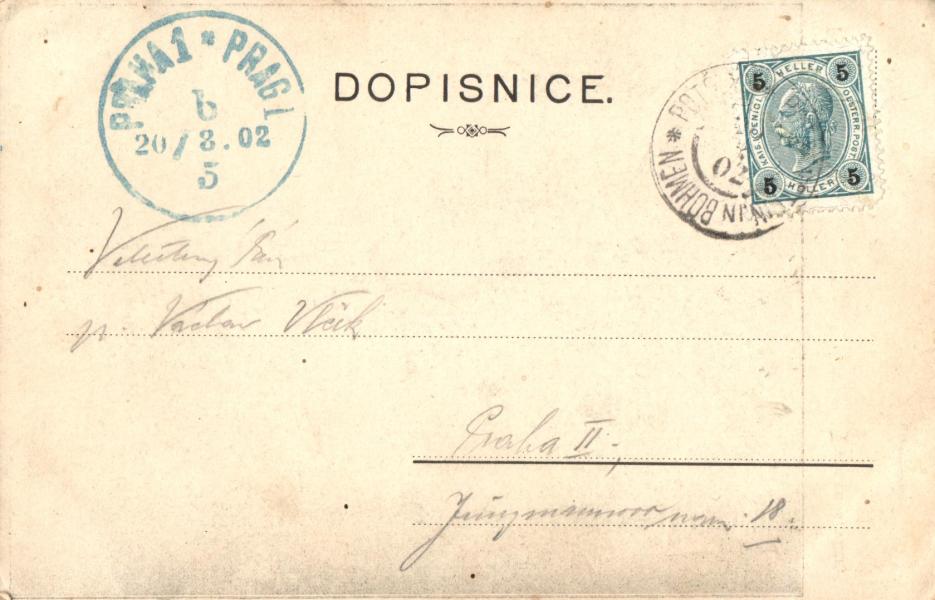 PRAHA 1 * PRAG 1
b
20/8.02
5
DOPISNICE.
5 HELLER 5
KAIS. KOENIGL. OESTERR. POST.
5 HELLER 5
IN BÖHMEN *
02
Pán
p. Václav Vlček
Praha II.,
18.